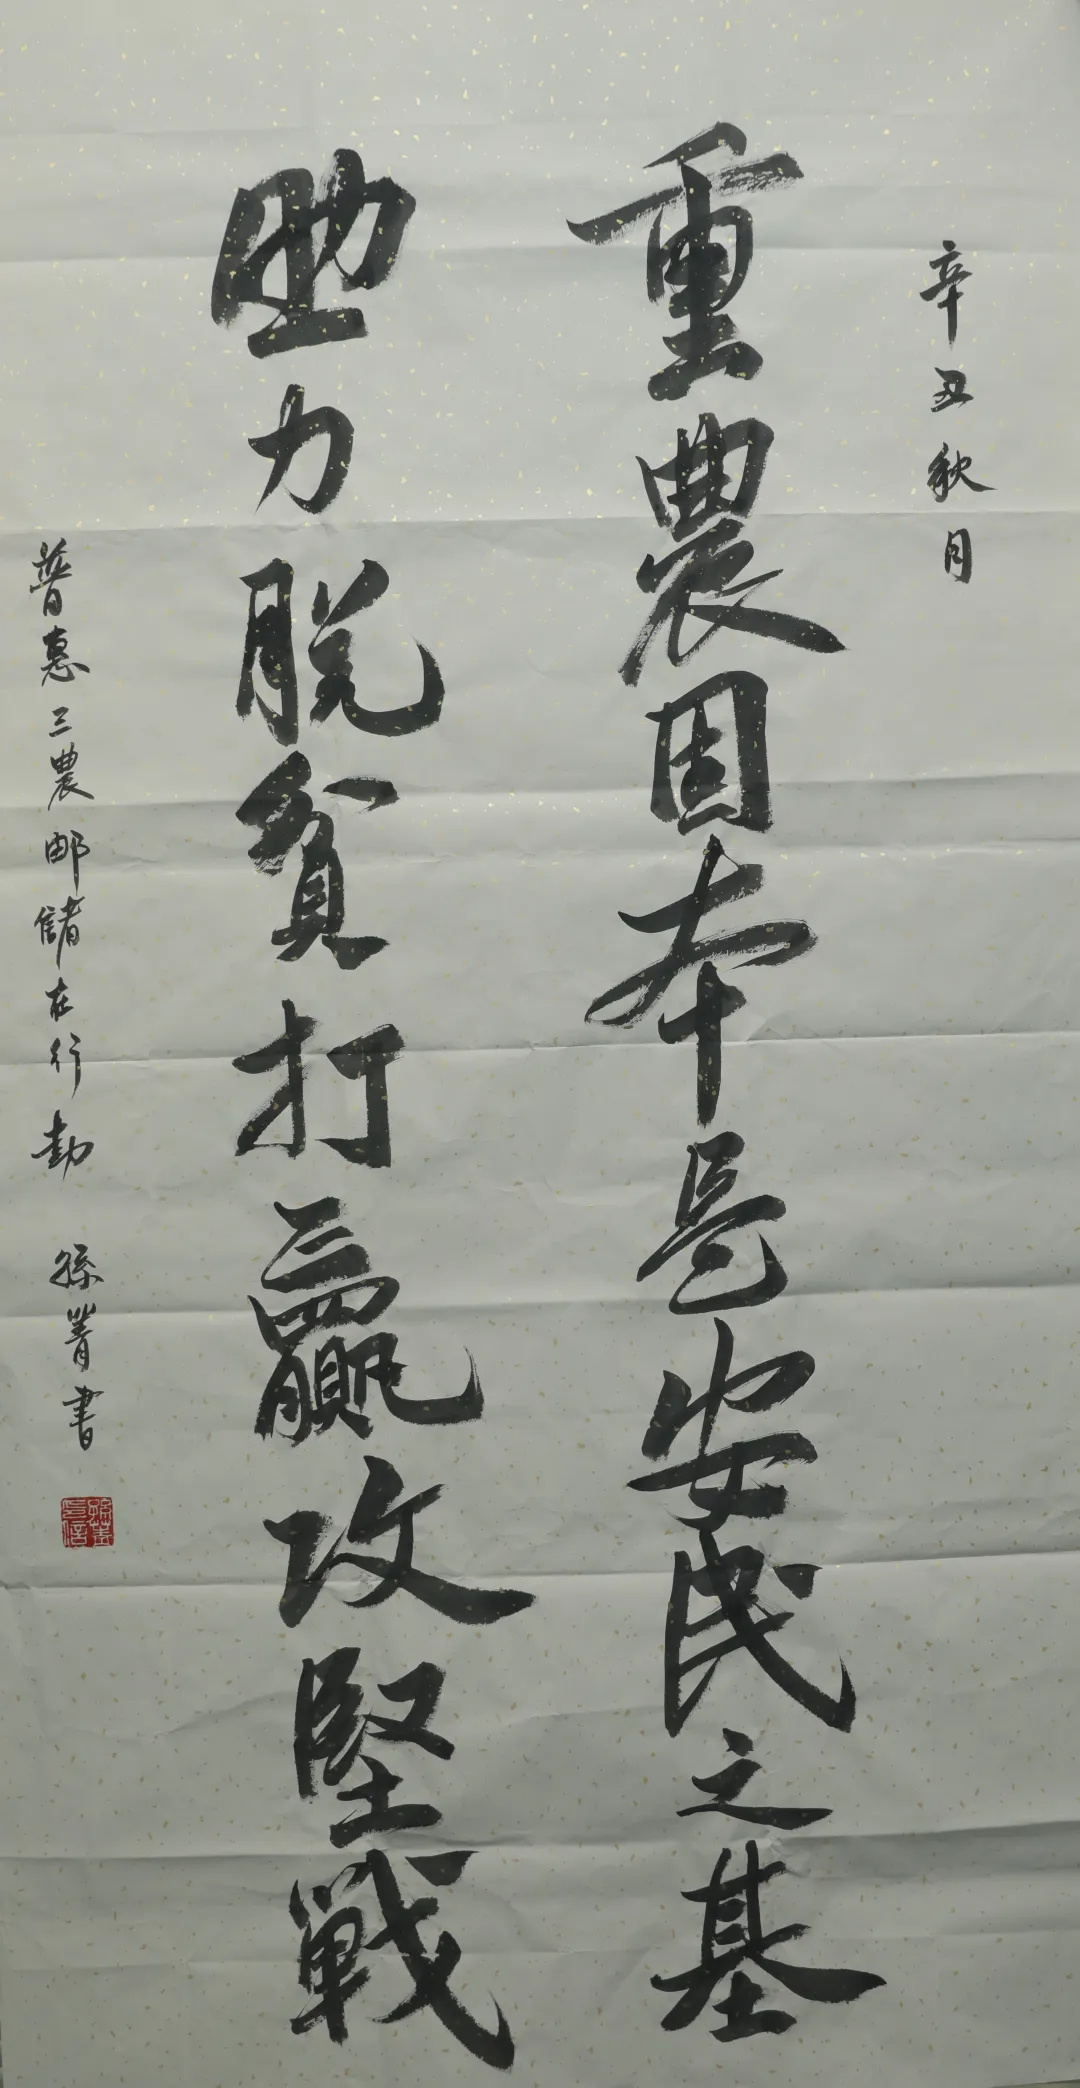 辛丑秋月
重農固本是安民之基
助力脱貧打贏攻堅戰
普惠三農邮儲在行動
孫菁書